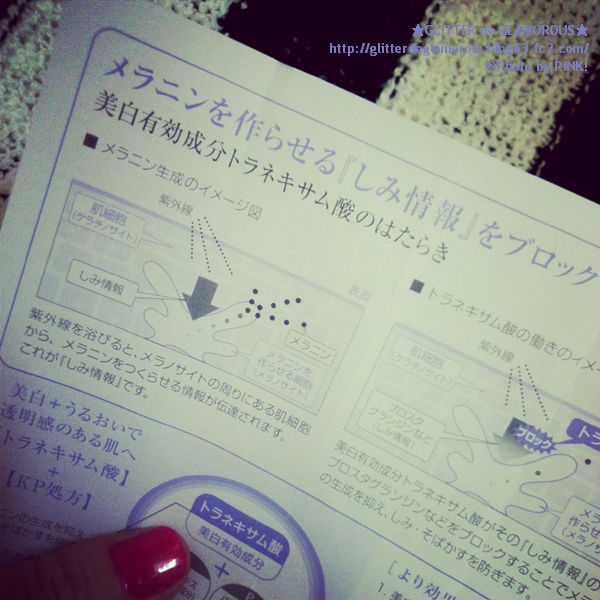 ★GLITTER de GLAMOROUS★
http://glitterdeglamorous.blog33.fc2.com/
©Photo by PINK!
メラニンを作らせる『しみ情報』をブロック
美白有効成分トラネキサム酸のはたらき
■メラニン生成のイメージ図
紫外線
肌細胞
(ケラチノサイト)
しみ情報
表皮
メラニン
メラニンを
作らせる細胞
(メラノサイト)
紫外線を浴びると、メラノサイトの周りにある肌細胞
から、メラニンをつくらせる情報が伝達されます。
これが『しみ情報』です。
■トラネキサム酸の働きのイメー
紫外線
肌細胞
(ケラチノサイト)
プロスタ
グランジンなど
(しみ情報)
ブロック
トラ
メラ
作らせ
(メラノサ
美白有効成分トラネキサム酸がその『しみ情報』の
プロスタグランジンなどをブロックすることでメラ
の生成を抑え、しみ・そばかすを防ぎます。
美白+うるおいで
透明感のある肌へ
トラネキサム酸】
+
【KP処方】
ニンの生成を抑え
そばかすを
トラネキサム酸
美白有効成分
+
[より効
1.